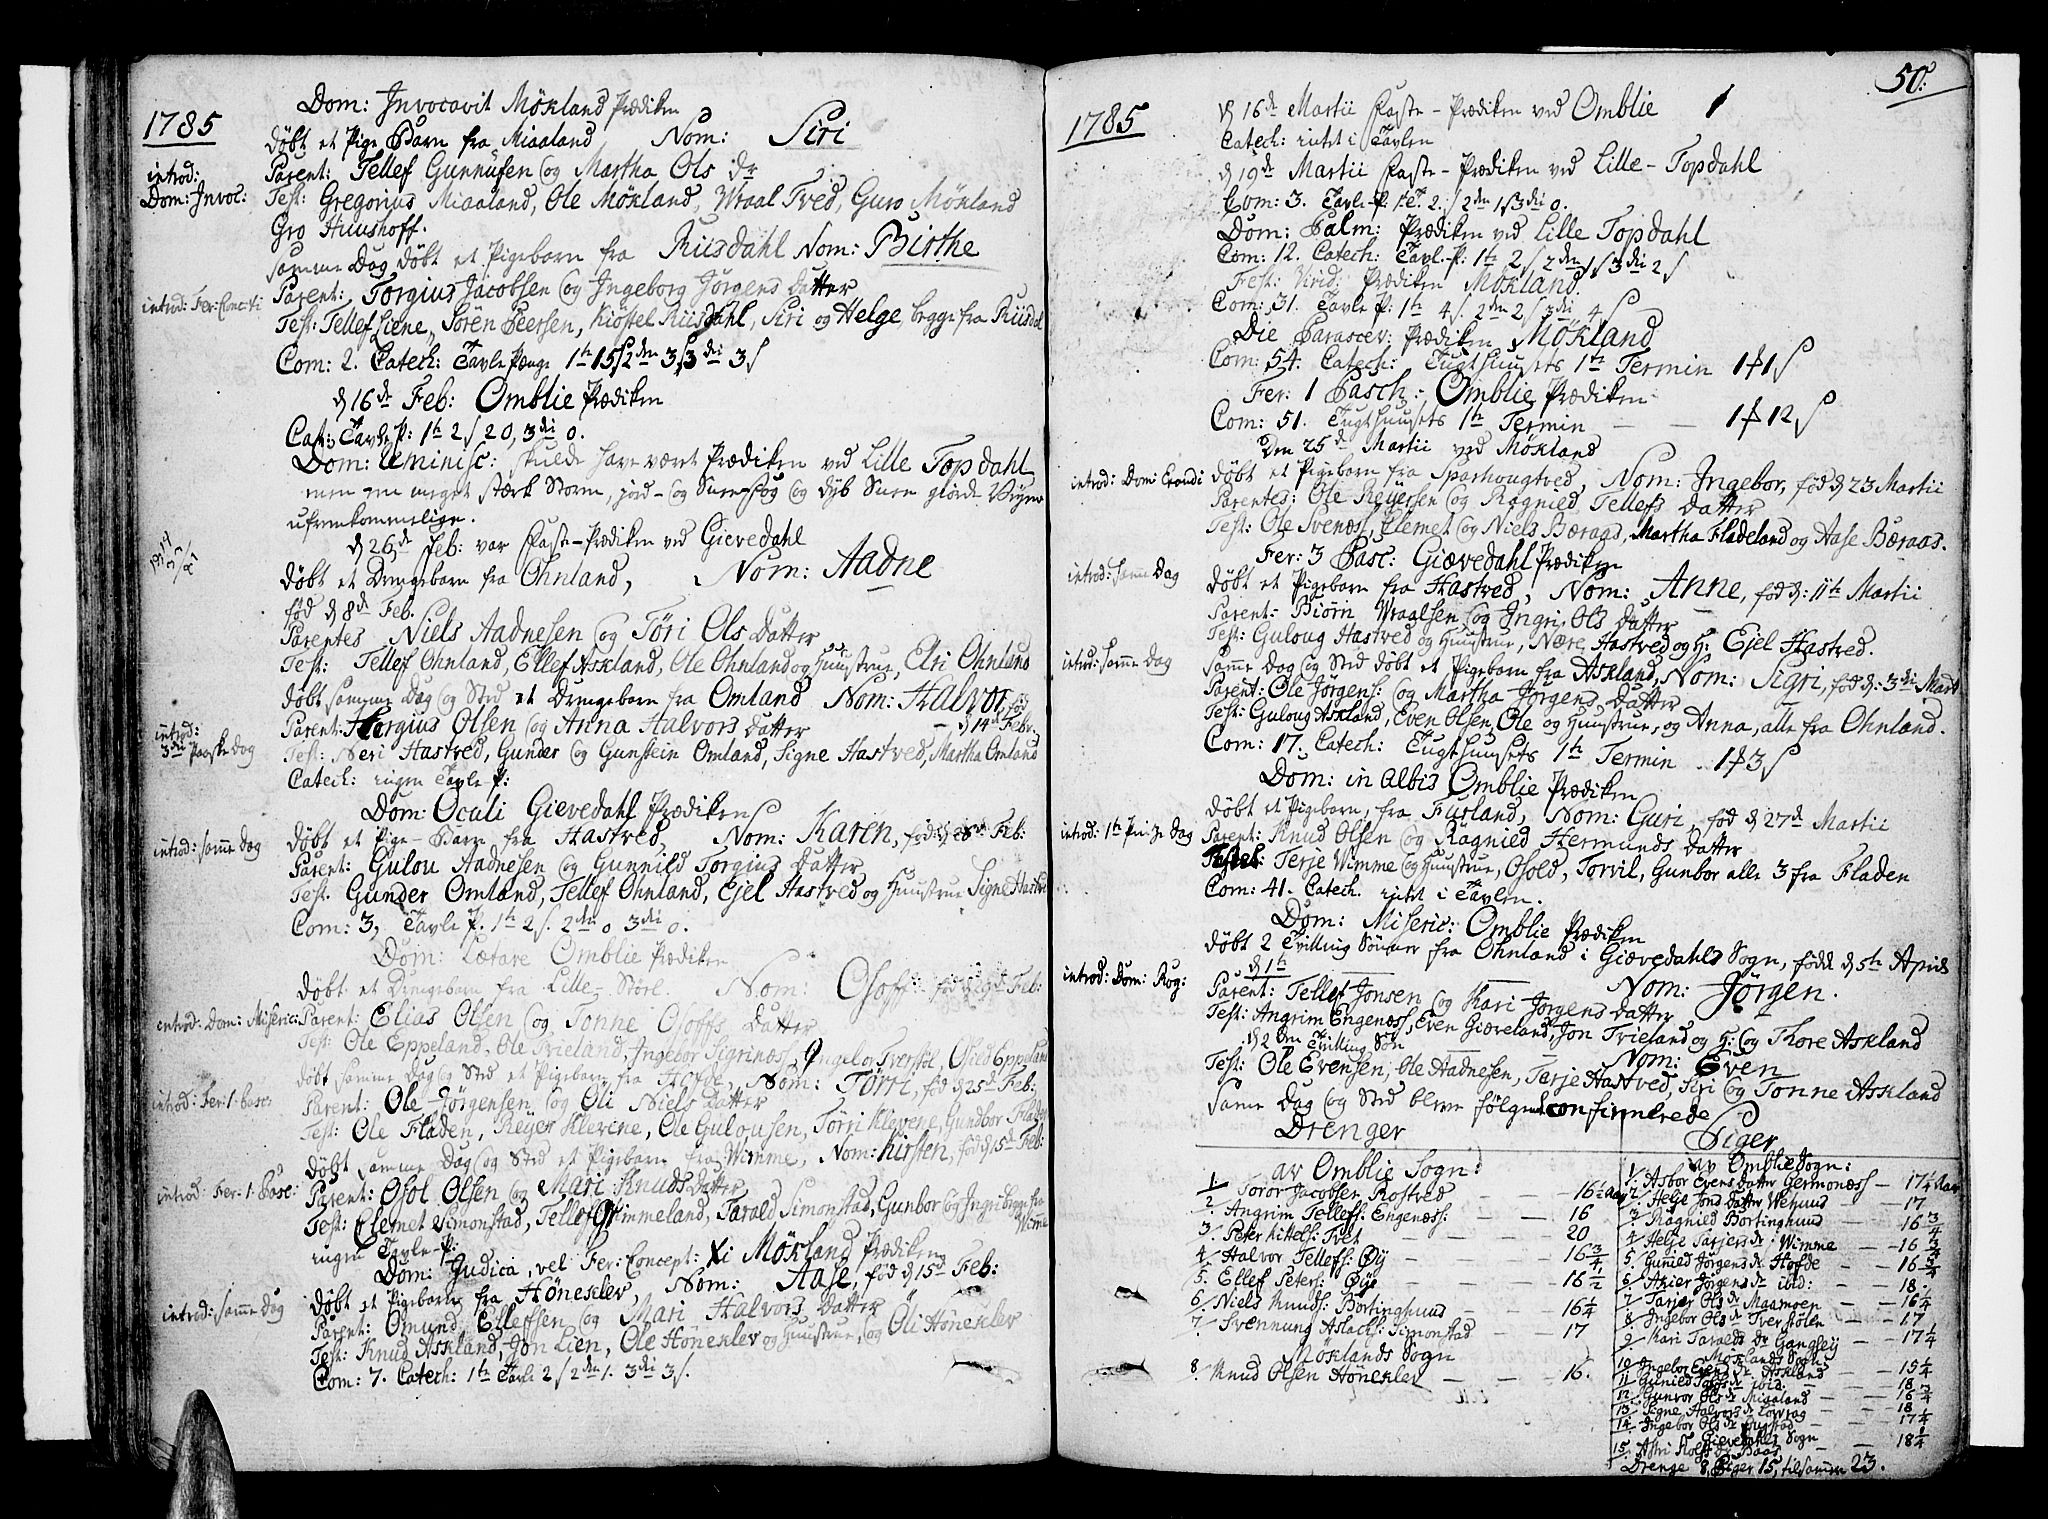 1785
Dom: Invocavit Mökland Prædiken
döbt et Pige Barn fra Miaaland Nom: Siri
introd:
Dom: Invoc:
Parent: Tellef Gunnufsen og Martha Ols dr
Test: Gregorius Miaaland, Ole Mökland, Wraal Tved, Guro Mökland
Gro Huushoff.
samme Dag döbt et Pigebarn fra Rusdahl Nom: Birthe
introd: Fer: Concti
Parent: Torgius Jacobsen og Ingeborg Jörgens datter
Test: Tellef Liene, Sören Peersen, Kiöstel Rusdahl, Siri og Helge, begge fra Rusdal
Com: 2. Catech: Tavle Penge 1te 15 s 2den 3 s 3die 3 s
d 16de Feb: Omblie Prædiken
Cat: Tavle P: 1te 2 s 2 0, 3die 0.
Dom: Reminisc: skulde have været Prædiken ved Lille Topdahl
men en meget stærk Storm, jord- og Snee-fog og dyb Snee giorde Veyene
ufremkommelige.
d 26de Feb: var Faste-Prædiken ved Gievedahl
döbt et Drengebarn fra Ohnland, Nom: Aadne
föd d 8de Feb.
Parentes Niels Aadnesen og Töri Ols datter
Test: Tellef Ohnland, Ellef Askland, Ole Ohnland og Huustrue, Elri Ohnland
döbt samme Dag og Sted et Drengebarn fra Omland Nom: Halvor, föd
d 14de Febr.
introd:
3die Paaske dag
Parent: Torgius Olsen og Anna Halvors datter
Test: Neri Hastved, Gunder og Gunstein Omland, Signe Hastved, Martha Omland
Catech: ingen Tavle-P:
Dom: Oculi Gievedahl Prædiken
döbt et Pige-Barn fra Hastved, Nom: Karen, föd d Feb:
introd: samme dag
Parent: Gulou Aadnesen og Gunnild Torgius datter
Test. Gunder Omland, Tellef Ohnland, Ejel Hastved og Huustrue Signe Hastved
Com: 3, Tavle P. 1te 2 s. 2den 0 3die 0.
Dom: Lætare Omblie Prædiken
döbt et Drengebarn fra Lille-Störl. Nom: Osoff föd d Feb:
introd: Dom: Miseric:
Parent: Elias Olsen og Tonne Osoffs datter
Test: Ole Eppeland, Ole Trieland, Ingebor Sigrinæs, Ingebor Tverstöl, Osied Eppeland
döbt samme Dag og Sted et Pigebarn fra Hofde, Nom: Törri, föd d 25de Feb:
introd: Fer: 1. Pasc:
Parent: Ole Jörgensen og Oli Niels datter
Test: Ole Fladen, Reyer Klevene, Ole Gulousen, Törri Klevene, Gundbor Fladen
döbt samme Dag og Sted et Pigebarn fra Wimme, Nom: Kirsten, föd d 15de Feb:
introd: Fer: 1. Pasc:
Parent: Osol Olsen og Mari Knuds datter
Test: Clemet Simonstad, Tellef Grimmeland, Tarald Simonstad, Gunbor og Ingri begge fra
Wimme
ingen Tavle-P:
Dom: Judica, vel Fer: Concept: Xti Mökland Prædiken
döbt et Pigebarn fra Höneklev, Nom: Aase, föd d 15de Feb:
introd: samme dag
Parent: Omund Ellefsen og Mari Halvors datter
Test: Knud Askland, Jon Lien, Ole Höneklev og Huustrue, og Oli Höneklev
Com: 7. Catech: 1te Tavle 2 s 2den 1. 3die 3 s.
50.
1785
d 16de Martii Faste-Prædiken ved Omblie
Catech: intet i Tavlen
d 19de Martii Faste-Prædiken ved Lille-Topdahl
Com: 3. Tavle-P. 1te. 2. s 2den 1 s 3die 0.
Dom: Palm: Prædiken ved Lille Topdahl
Com: 12. Catech: Tavl-P: 1te 2 s 2den 1 s 3die 2 s
Fest: Virid: Prædiken Mökland.
Com: 31. Tavle P: 1te 4 s. 2den 2 s 3die 4 s
Die Parascev: Prædiken Mökland
Com: 54. Catech: Tugthusets 1te Termin 1 f 1 s
Fer: 1 Pasch: Omblie Prædiken
Com: 51. Tugthuusets 1te Termin — — 1 f 12 s
Den 25de Martii ved Mökland
introd: Dom: Exaudi
döbt et Pigebarn fra Sparhougtved, Nom: Ingebor, föd d 23 Martii
Parentes: Ole Reyersen og Ragnied Tellefs datter
Test: Ole Svenæs, Clemet og Niels Bæraas, Martha Fladeland og Aase Bæraas.
Fer: 3 Pasc: Giævedahl Prædiken
introd: samme Dag
döbt et Pigebarn fra Hastved, Nom: Anne, föd d: 11te Martii
Parent: Biörn Wraalsen og Ingri Ols datter
Test: Guloug Hastved og Huustrue, Nære Hastved og H: Ejel Hastved.
introd: samme dag
samme Dag og Sted döbt et Pigebarn fra Askland, Nom: Sigri, föd d: 3die Mart
Parent: Ole Jörgens: og Martha Jörgens datter
Test: Guloug Askland, Even Olsen, Ole og Huustrue, og Anna, alle fra Ohnland.
Com: 17. Catech: Tugthuusets 1te Termin . 1 f 3 s
Dom: in albis Omblie Prædiken
döbt et Pigebarn, fra Fusland, Nom: Guri, föd d 27de Martii
introd: 1te Pintze dag
Parent: Knud Olsen og Ragnied Hermunds datter
Test: Terje Wimme og Huustrue, Osold, Torvil, Gunbor alle 3 fra Fladen
Com: 41. Catech. intet i Tavlen.
Dom: Miseric: Omblie Prædiken
döbt 2 Tvilling Sönner fra Ohnland i Giævedahls Sogn, födde d 5te April
introd: Dom: Rog:
d 1te
Nom: Jörgen.
Parent: Tellef Jonsen og Kari Jörgens datter
Test: Angrim Engenæss, Even Giæveland, Jon Trieland og H: og Thore Askland
d 2den Tvilling Sön
Nom: Even
Test: Ole Evensen, Ole Aadnesen, Terje Hastved, Siri og Tonne Askland
Samme Dag og Sted bleve fölgende confirmerede
Drenger
av Omblie Sogn:
1. Toror Jacobsen Rostved — — 16 1/2 Aar
2. Angrim Tellefs: Engenæss: — — 16
3. Peter Kittels: Tvet — — 20
4. Halvor Tellefs: Öy — — 16 3/4
5. Ellef Peters: Öye — — 16 1/2
6. Niels Knuds: Bortinghuus — — 16 1/4
7. Svennung Aslachs: Simonstad — — 17
Möklands Sogn
8. Knud Olsen Höneklev — — 16.
Piger
av Omblie Sogn:
1. Asbor Evens datter Germonæss — 17 1/4 Aar
2. Helje Jons datter Wehuus — 17
3. Ragnied Bortinghuus — 16 3/4
4. Helje Tarjers dr: Wimme — 16 3/4
5. Gunied Jörgens dr Hofde — 16 3/4
6. Asier Jörgens dr ibid: — 18
7. Tarjer Ols dr Maamoen — 16 1/4
8. Ingebor Ols dr Tverstölen — 17
9. Kari Taralds dr Gangley — 17 1/4
Möklands Sogn
10. Ingebor Evens dr Askland — 15 1/4
11. Gunied dr ibid: — 18
12. Gunvor Ols dr Miaaland — 16 3/4
13. Signe Halvors dr — 18
14. Ingebor Ols dr — 17 1/4
Gievedahls Sogn
15. Astri dr Baas — 18 1/4
Drenge 8, Piger 15, tilsamm 23.